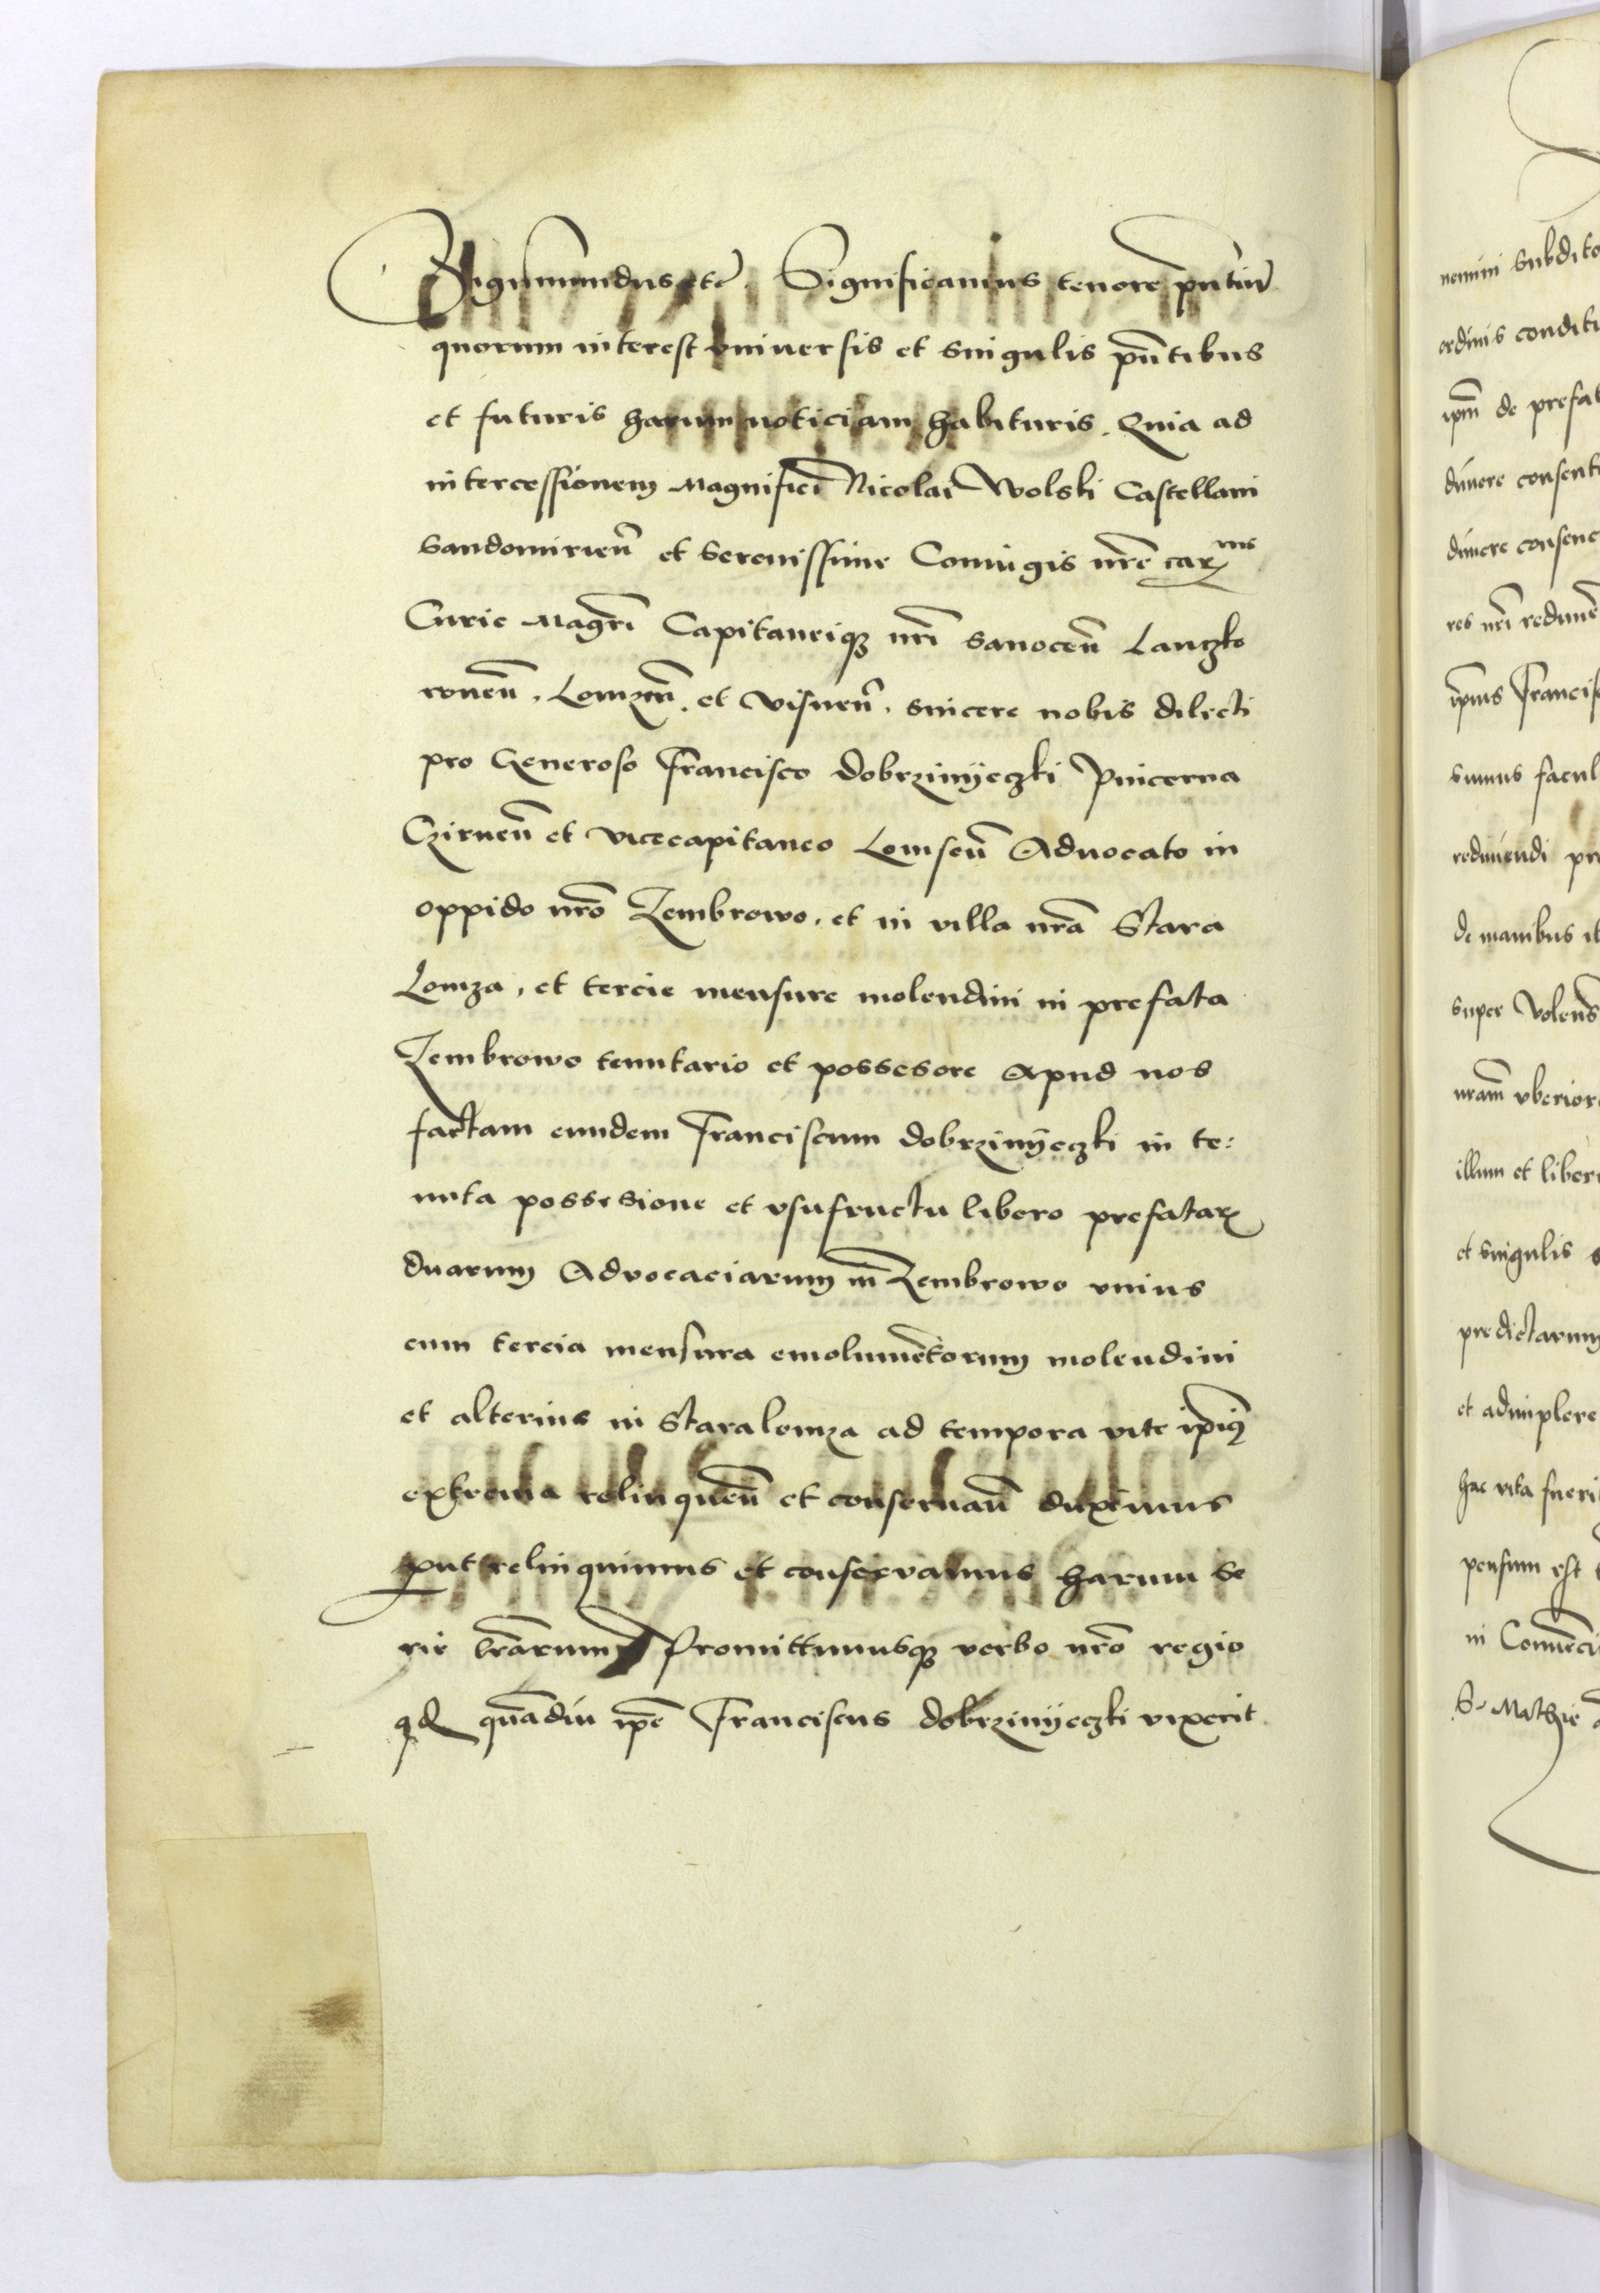 Sigismundus etc. Significamus tenore pntium
quorum interest vniuersis et singulis pntibus
et futuris harum noticiam habituris. Quia ad
intercessionem Magnifici Nicolai Wolski Castellani
Sandomirien et Serenissime Coniugis nre car
Curie Magri Capitaneiqz nri Sanocen Lanczko
ronen. Lomzen. et Visnen. sincere nobis dilecti
pro Generoso Francisco dobrzinÿeczki Pincerna
Czirnen et vicecapitaneo Lomsen Aduocato in
oppido nro Zembrowo. et in villa nra Stara
Lomza, et tercie mensure molendini in prefata
Zembrowo tenutario et possesore Apud nos
factam eundem Franciscum dobrzinÿeczki in te:
nuta possesione et vsufructu libero prefatar
duarum Aduocaciarum in Zembrowo vnius
cum tercia mensura emolumentorum molendini
et alterius in Staralomza ad tempora vite ipius
extrema relinquen et conseruan duximus
put relinquimus et conservamus harum se
rie lrarum Promittimusqz verbo nro regio
qd quadiu ipe Franciscus dobrzinÿeczki vixerit
nemini subdito
ordinis conditi
ipm de prefat
dimere consenti
dimere consenc
res nri redimē
ipius Francis
sumus facul
redimendi pr
de manibus il
super Volens
nram vberior
illum et liber
et singulis
predictarum
et adimplere
hac vita fueri
pensum est
in Convenci
S. Mathie